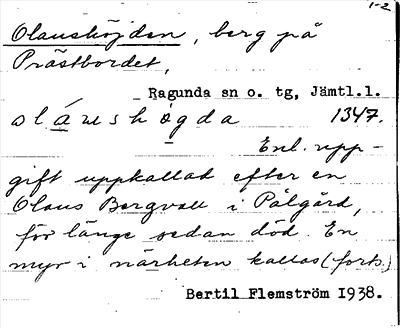 1-2
Olaushöjden, berg på
Prästbordet,
Ragunda sn o. tg, Jämtl.l.
oláushögda 1347.
Enl. upp-
gift uppkallad efter en
Olaus Bergvall i Pålgård,
för länge sedan död. En
myr i närheten kallas (forts.)
Bertil Flemström 1938.